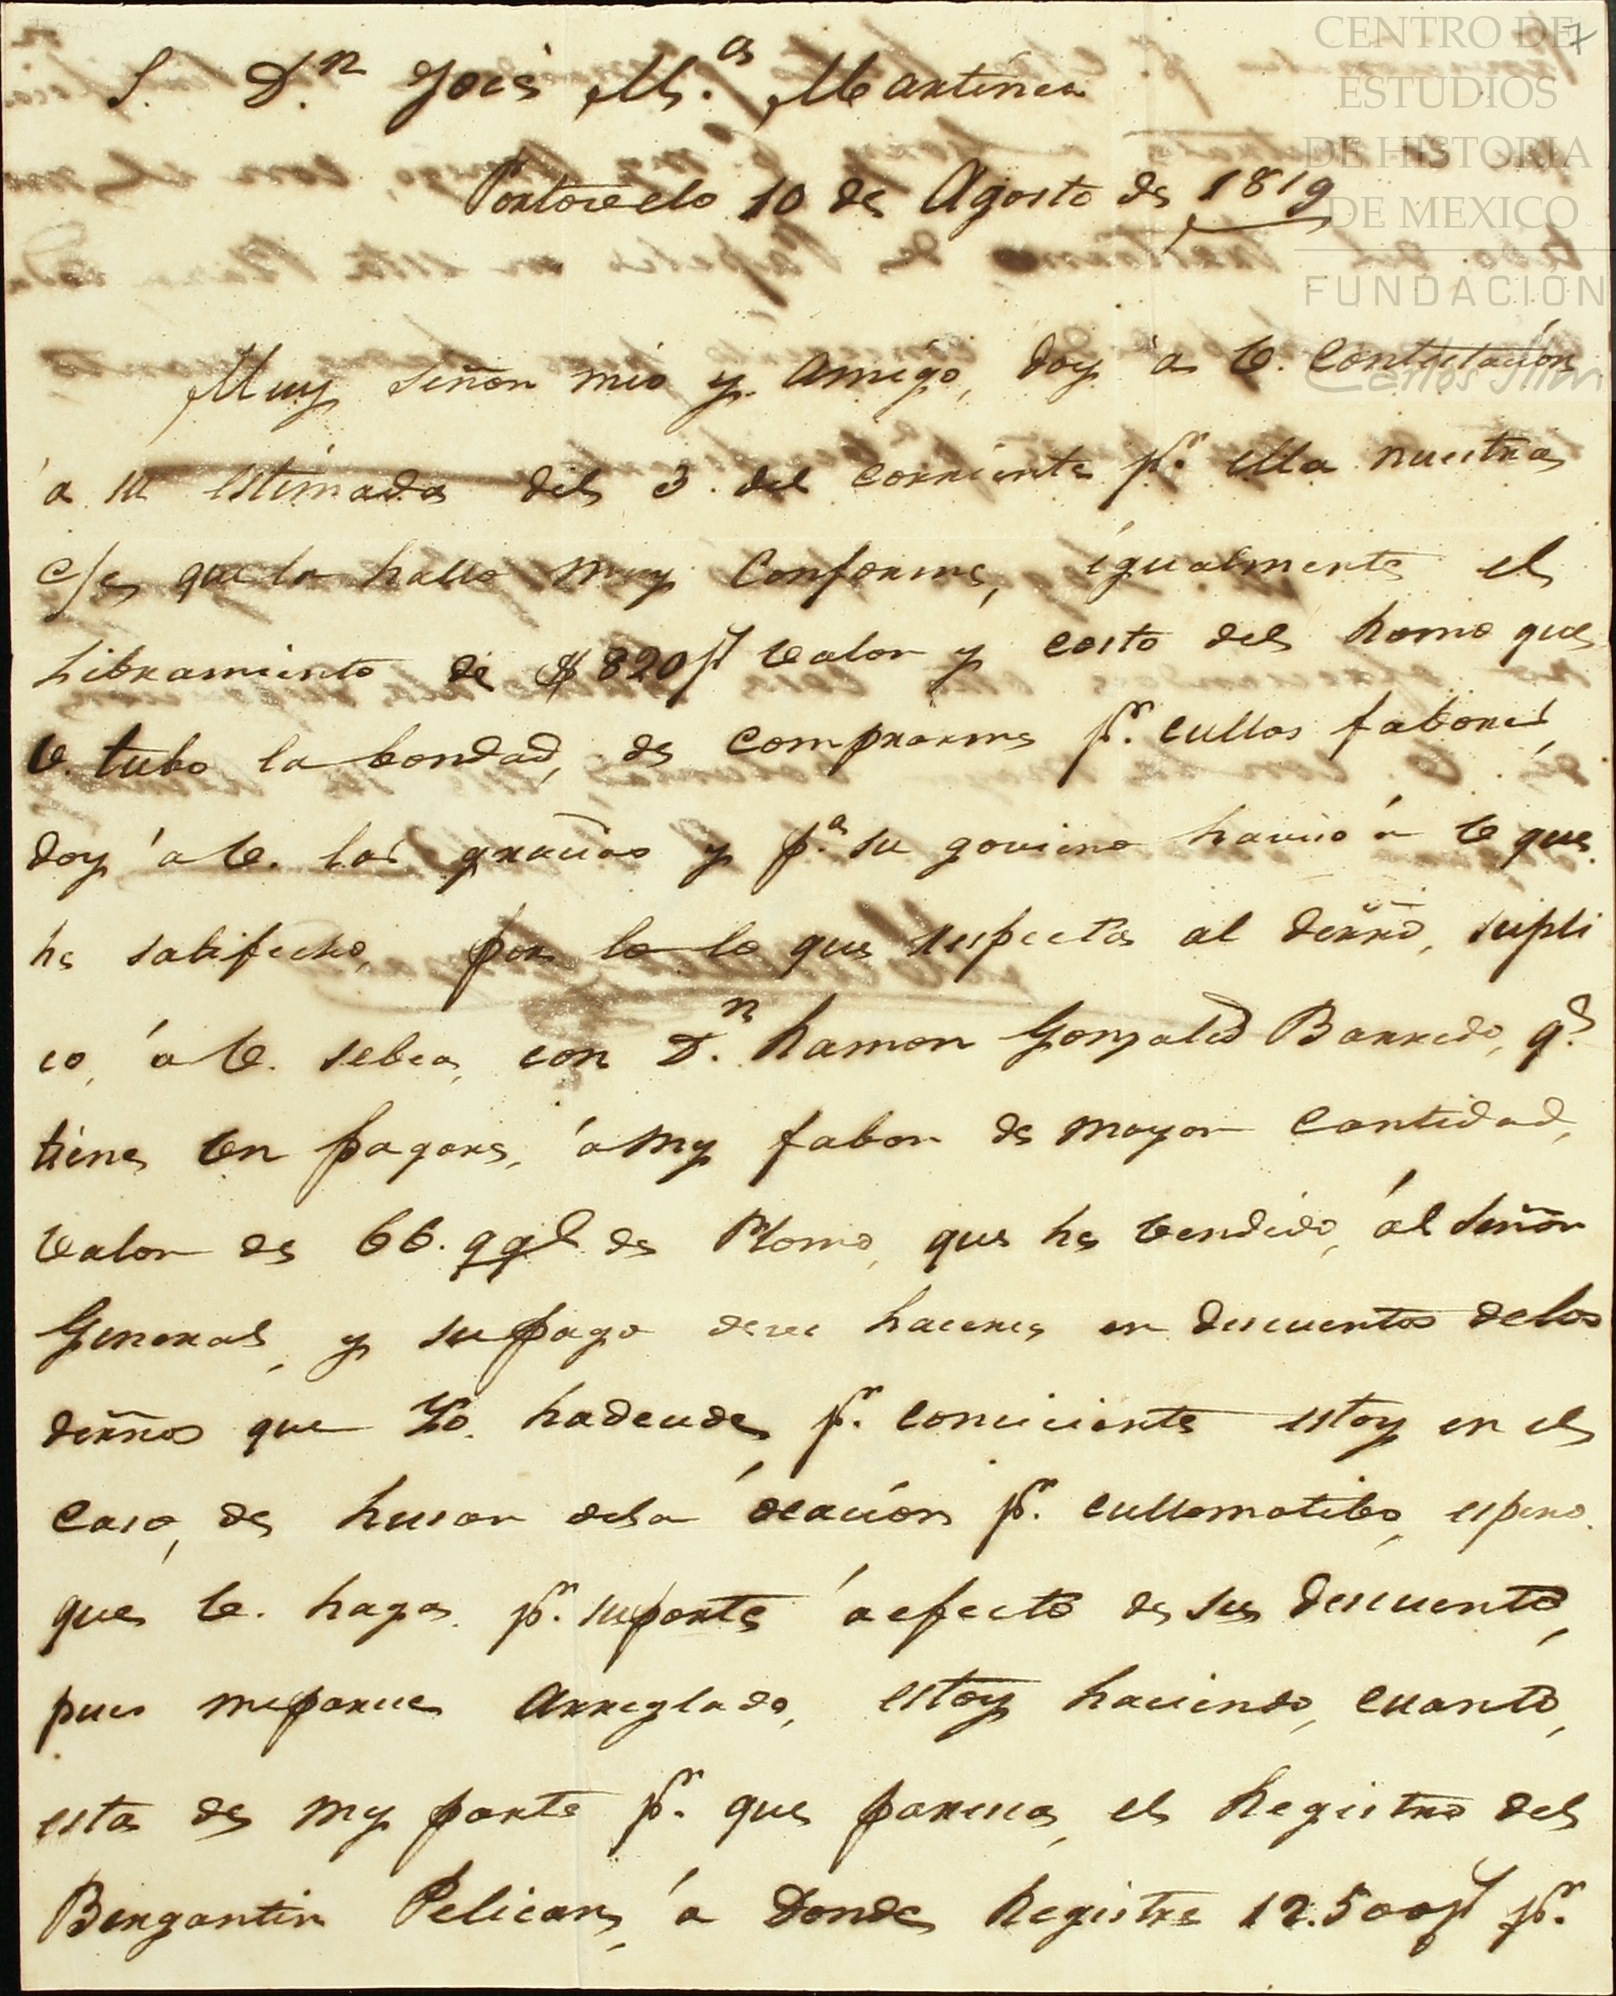 CENTRO DE
ESTUDIOS
DE HISTORIA
DE MEXICO
FUNDACIÓN
Carlos Slim
7
S. D.n José M.a Martinez
Portovelo 10 de Agosto de 1819
Muy Señor mio y amigo, doy á V. Contestación
á su estimada del 3. del corriente p.r ella nuestra
c/c que la hallo muy Conforme, igualmente el
Libramiento de $ 820 p.s valor y costo del Romo que
V. tubo la bondad, de comprarme p.r cullos fabores,
doy á V. las gracias y p.a su govierno haviso á V que
he satifecho, por lo lo que respecta al derño, supli
co, á V. se bea, con D.n Ramon Gonzales Barredo, q.e
tiene un pagare, á my fabor de mayor cantidad,
valor de 66. qql.s de Plomo, que he vendido, ál Señor
General, y su pago deve hacerce en descuentos de los
derños que Yo. hadeude, p.r conciciente estoy en el
caso, de husar de la ócación p.r cullo motibo, espero
que V. haga p.r su parte á efecto de su descuento,
pues me parece arreglado, estoy haciendo, cuanto,
esta de my parte p.r que paresca, el Registro del
Bergantin Pelican, á donde Registre 12.500 p.s p.r